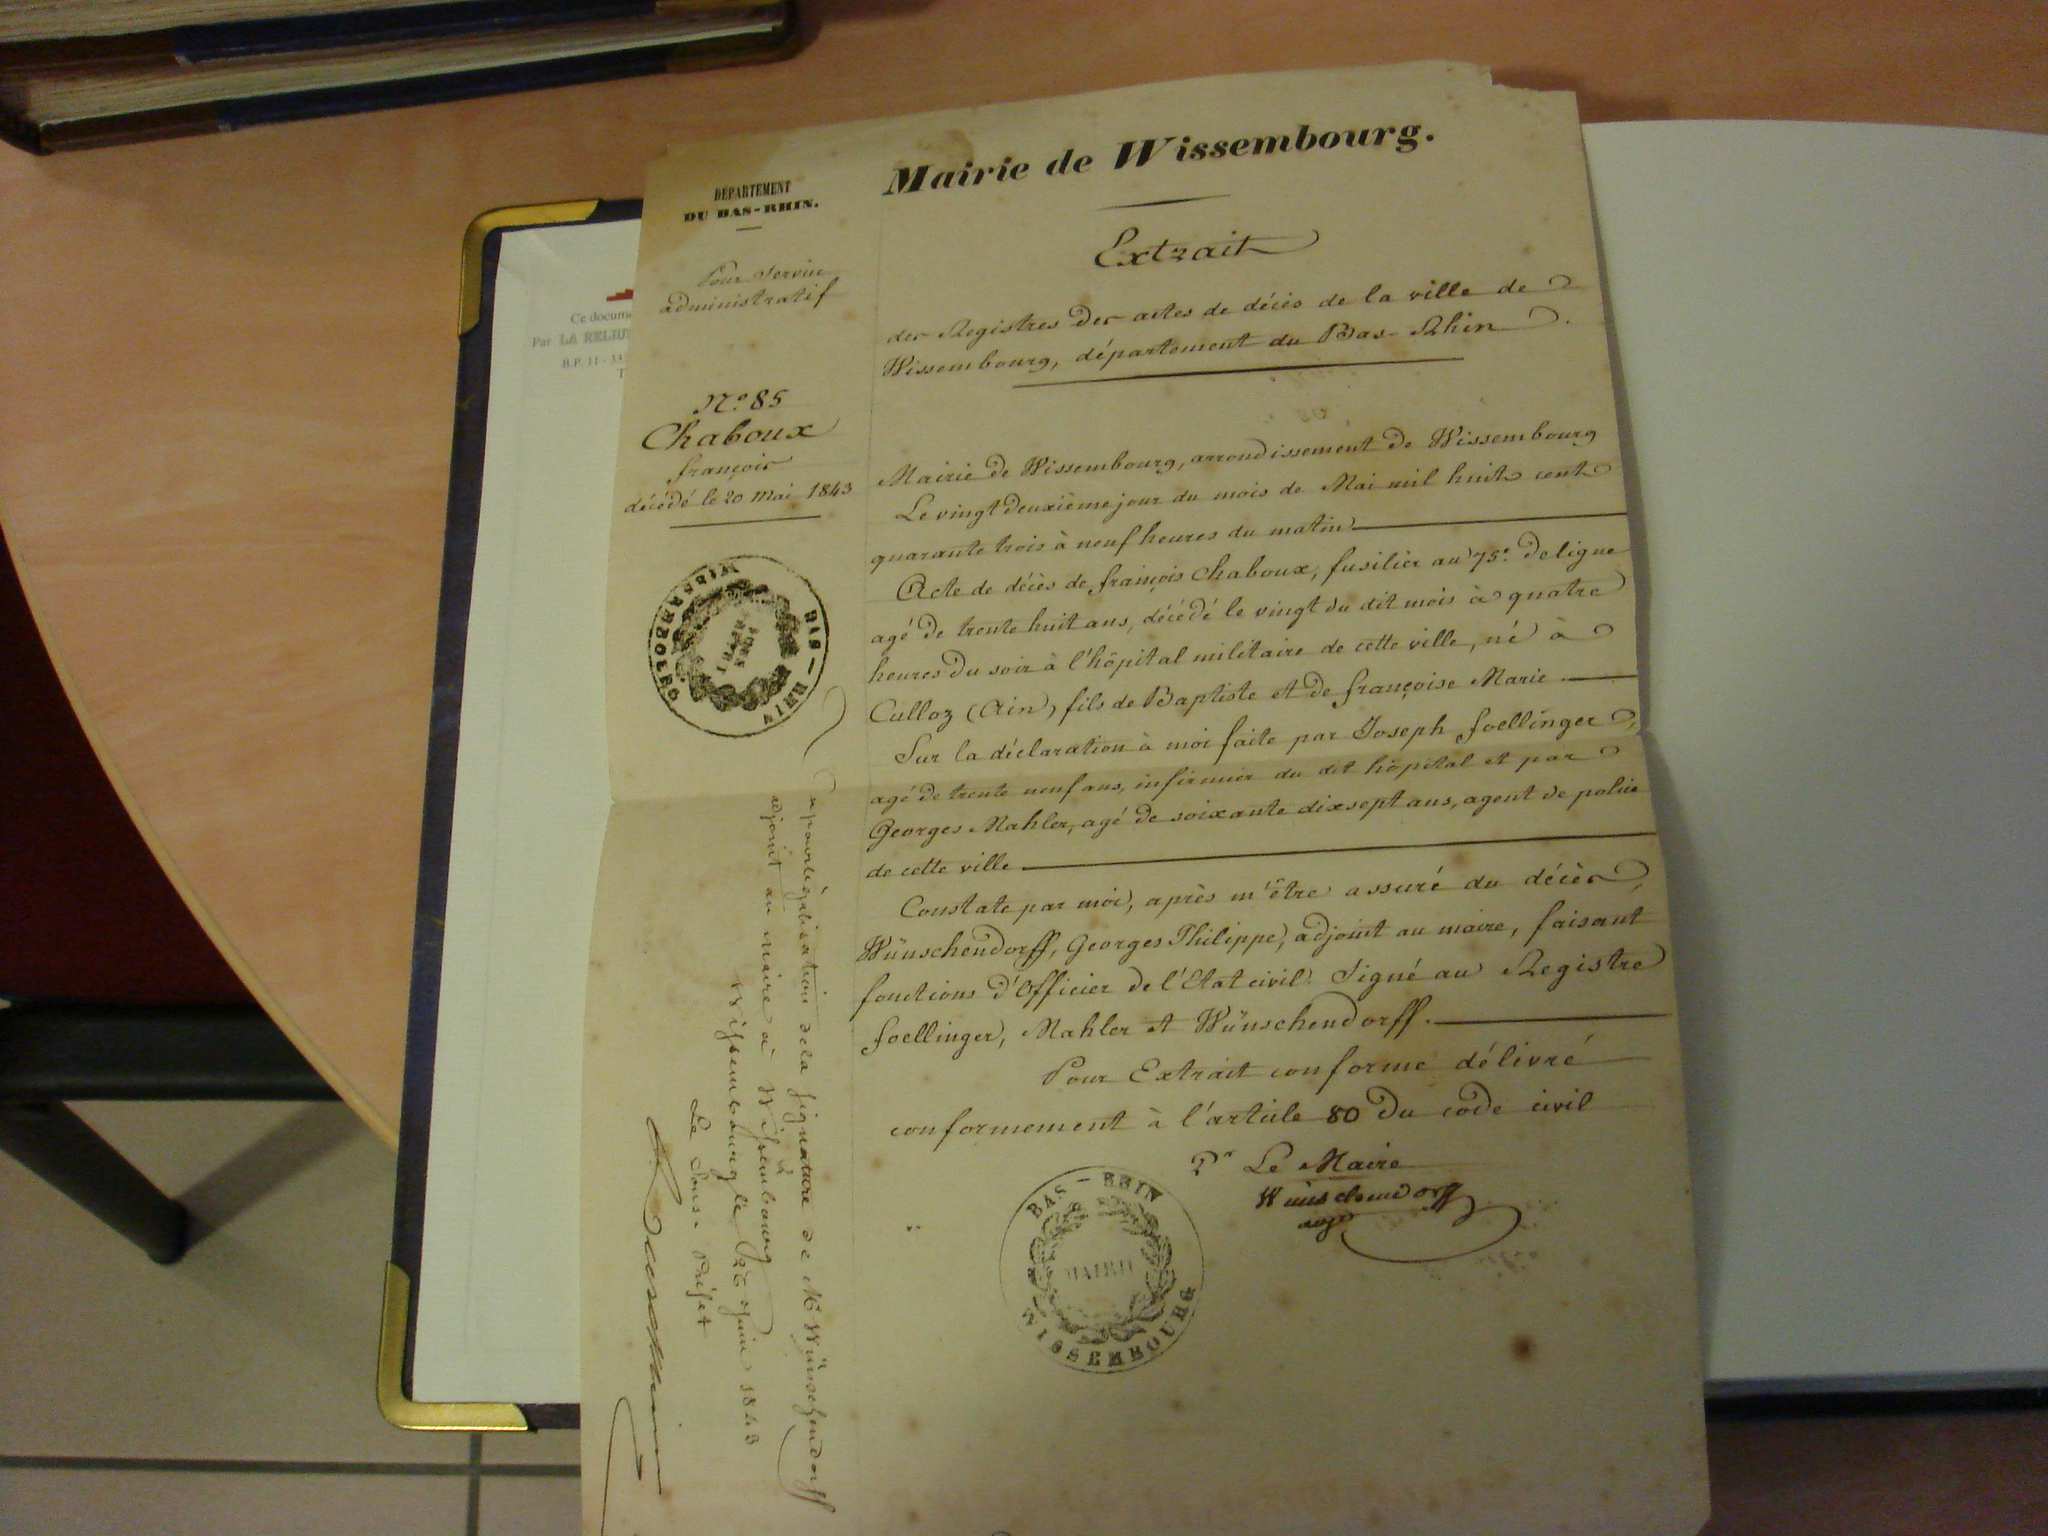 Mairie de Wissembourg.
DÉPARTEMENT
DU BAS-RHIN.
Pour Service
administratif
Extrait
des Registres des actes de décès de la ville de
Wissembourg, département du Bas-Rhin.
N.º 85
Chaboux
françois
décédé le 20 Mai 1843
Mairie de Wissembourg, arrondissement de Wissembourg
Le vingt deuxième jour du mois de Mai mil huit cent
quarante trois à neuf heures du matin
Acte de décès de françois Chaboux, fusilier au 75.e de ligne
agé de trente huit ans, décédé le vingt du dit mois à quatre
heures du soir à l'hôpital militaire de cette ville, né à
Culloz (Ain) fils de Baptiste et de françoise Marie
Sur la déclaration à moi faite par Joseph foellinger,
agé de trente neuf ans, infirmier du dit hôpital et par
Georges Mahler, agé de soixante dixsept ans, agent de police
de cette ville
Constate par moi, après m'être assuré du décès,
Wünschendorff, Georges Philippe, adjoint au maire, faisant
fonctions d'Officier de l'Etat civil. Signé au Registre
foellinger, Mahler et Wünschendorff.
Pour Extrait conforme délivré
conformement à l'article 80 du code civil
Pr Le Maire
Wünschendorff
adj
BAS-RHIN
MAIRIE
WISSEMBOURG
BAS-RHIN
WISSEMBOURG
SOUS
PRÉFET
Vu pour légalisation de la signature de M. Wünschendorff
adjoint au maire à Wissembourg
Wissembourg le 22 Juin 1843
Le Sous-Préfet
Ce docum
Par LA RELIU
B.P. 11 - 34
T